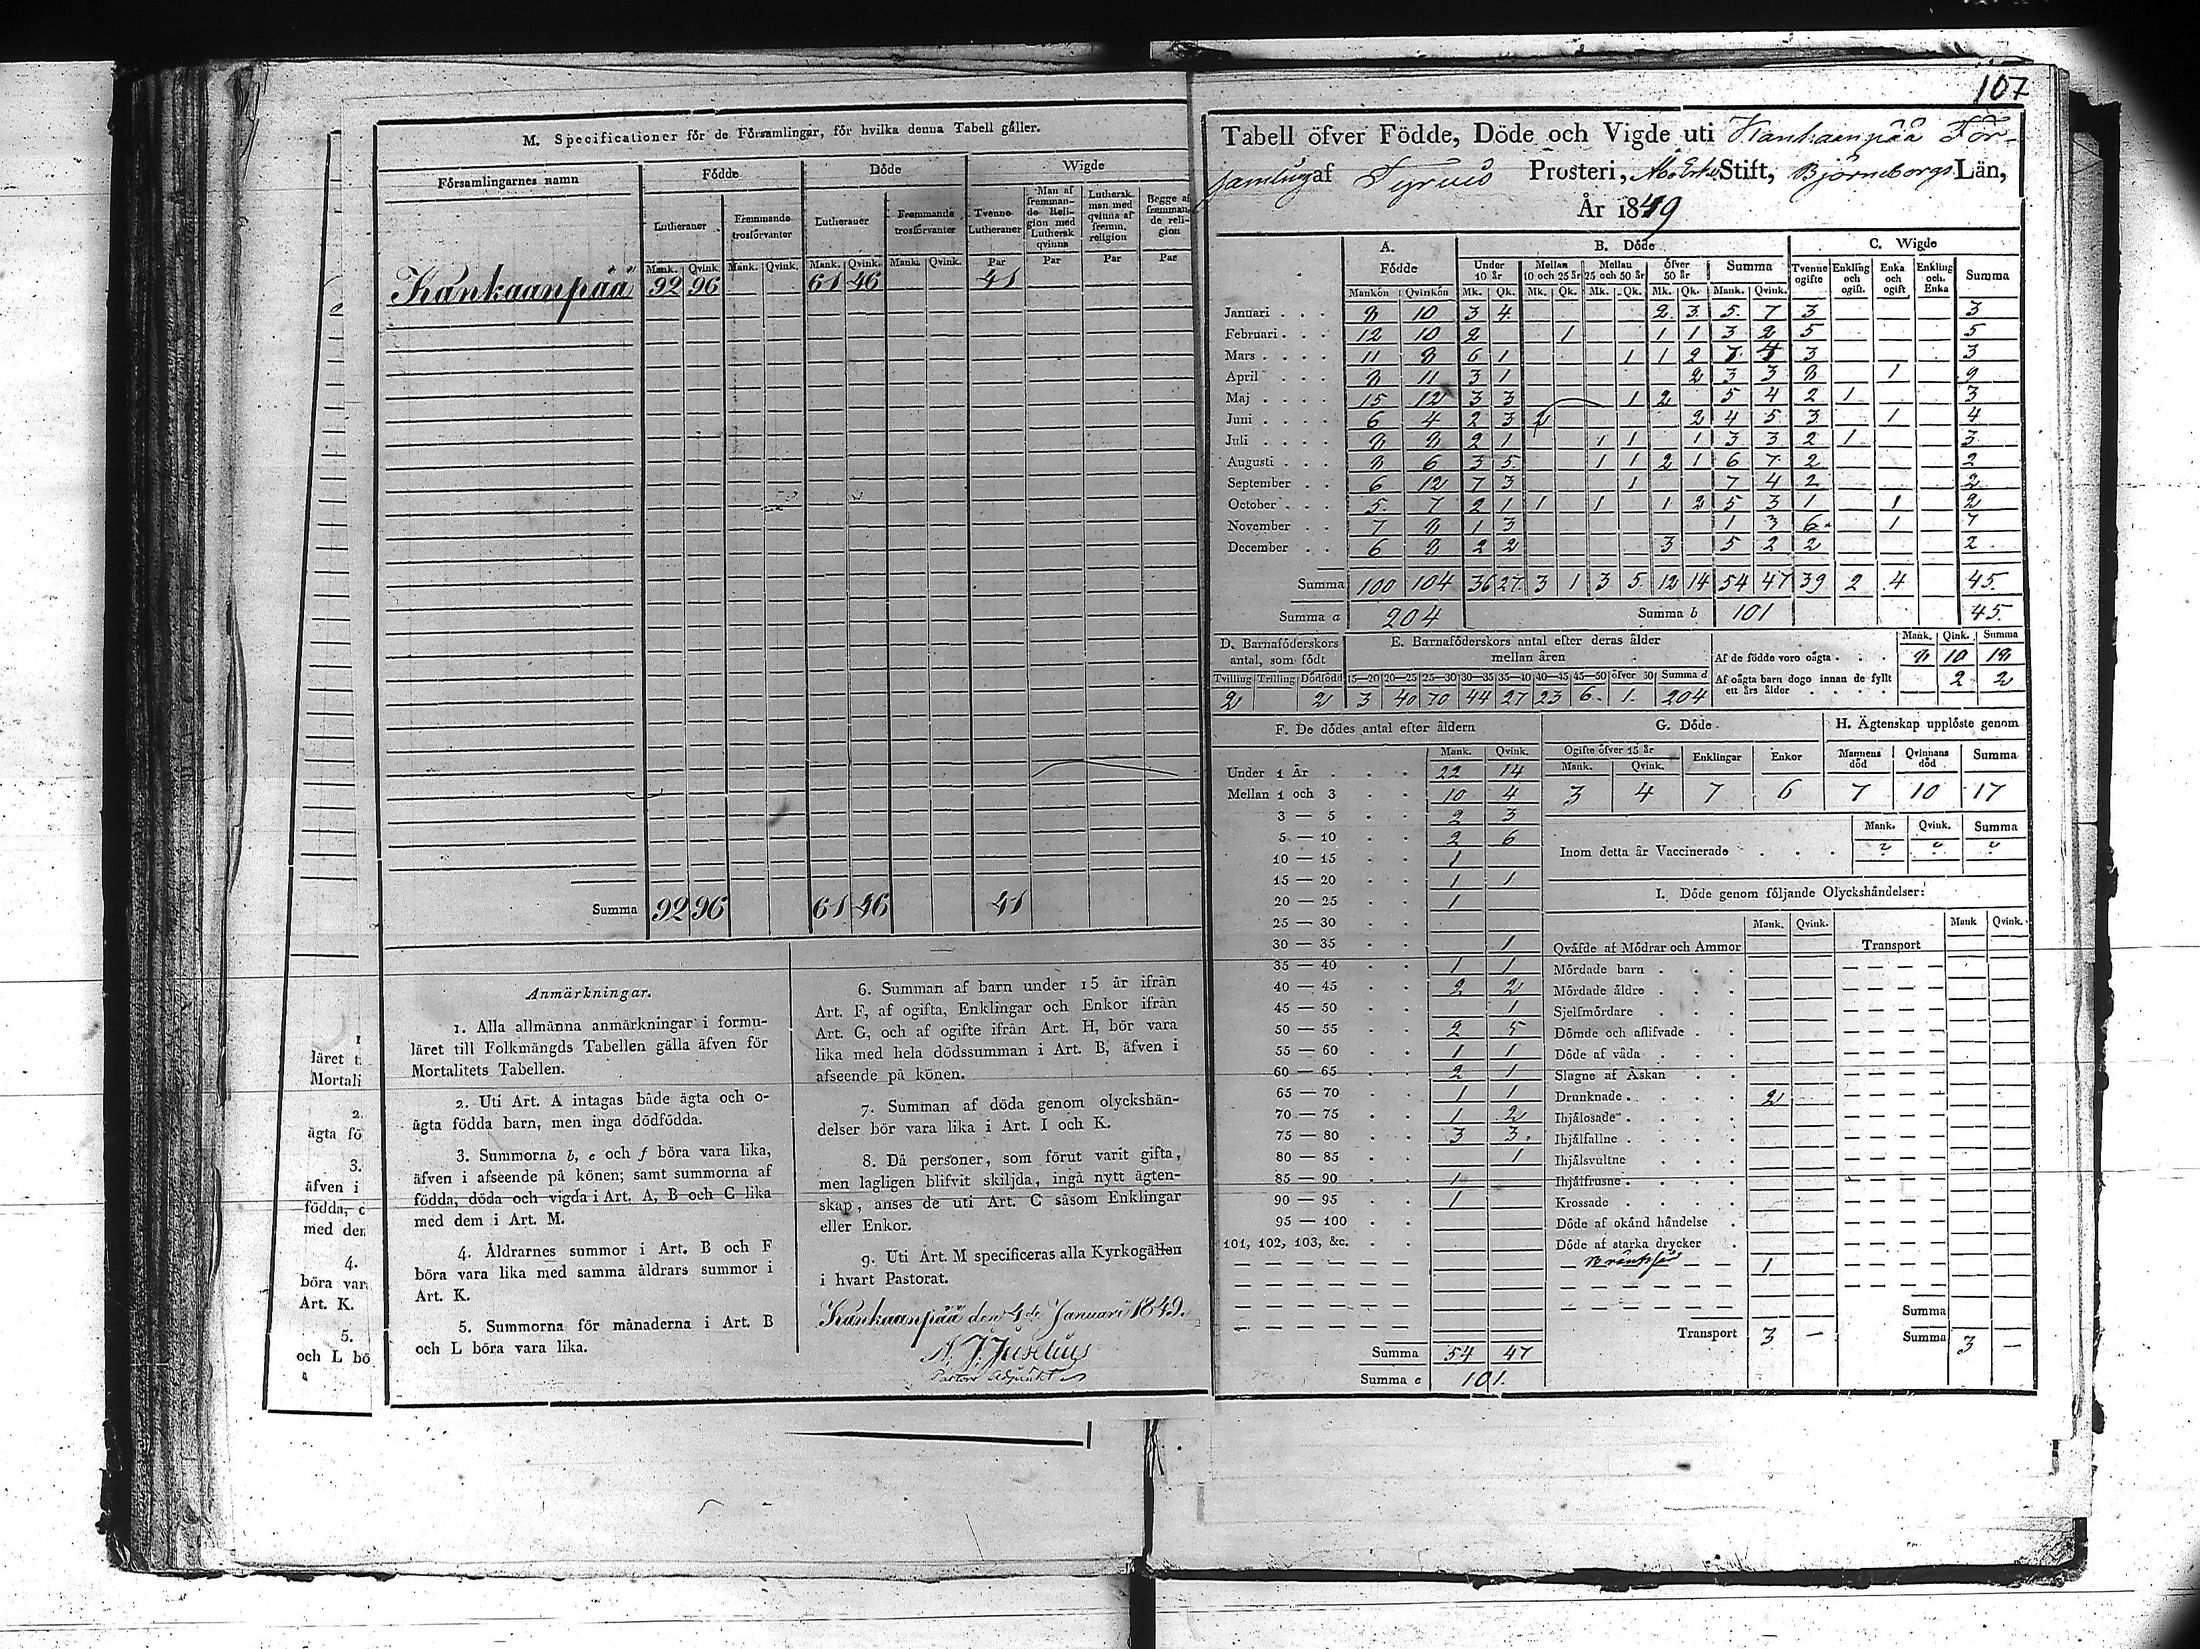 M. Specificationer för de Församlingar, för hvilka denna Tabell gäller.
Församlingarnes namn Födde Döde Wigde
Lutheraner Fremmande trosförvanter Lutheraner Fremmande trosförvanter Tvenne Lutheraner Man af fremmande Religion med Luthersk qvinna Luthersk man med qvinna af fremm. religion Begge af fremmande religion
Mank. Qvink. Mank. Qvink. Mank. Qvink. Mank. Qvink. Par Par Par Par
Kankaanpää 92 96 61 46 41
Summa 92 96 61 46 41
Anmärkningar.
1. Alla allmänna anmärkningar i formu-
läret till Folkmängds Tabellen gälla äfven för
Mortalitets Tabellen.
2. Uti Art. A intagas både ägta och o-
ägta födda barn, men inga dödfödda.
3. Summorna b, e och f böra vara lika,
äfven i afseende på könen; samt summorna af
födda, döda och vigda i Art. A, B och C lika
med dem i Art. M.
4. Åldrarnes summor i Art. B och F
böra vara lika med samma åldrars summor i
Art. K.
5. Summorna för månaderna i Art. B
och L böra vara lika.
6. Summan af barn under 15 år ifrån
Art. F, af ogifta, Enklingar och Enkor ifrån
Art. G, och af ogifte ifrån Art. H, bör vara
lika med hela dödssumman i Art. B, äfven i
afseende på könen.
7. Summan af döda genom olyckshän-
delser bör vara lika i Art. I och K.
8. Då personer, som förut varit gifta,
men lagligen blifvit skiljda, ingå nytt ägten-
skap, anses de uti Art. C såsom Enklingar
eller Enkor.
9. Uti Art. M specificeras alla Kyrkogällen
i hvart Pastorat.
Kankaanpää den 4de Januari 1849.
Juselius
107
Tabell öfver Födde, Döde och Vigde uti Kankaanpää För-
samling af Tyrvis Prosteri, Åbo Erke Stift, Björneborgs Län,
År 1849
A. Födde B. Döde C. Wigde
Under 10 år Mellan 10 och 25 år Mellan 25 och 50 år Öfver 50 år Summa Tvenne ogifte Enkling och ogift. Enka och ogift Enkling och Enka Summa
Mankön Qvinkön Mk. Qk. Mk. Qk. Mk. Qk. Mk. Qk. Mank. Qvink.
Januari 8 10 3 4 2 3 5 7 3 3
Februari 12 10 2 1 1 1 3 2 5 5
Mars 11 8 6 1 1 1 2 7 4 3 3
April 8 11 3 1 2 3 3 8 1 9
Maj 15 12 3 3 1 2 5 4 2 1 3
Juni 6 4 2 3 2 2 4 5 3 1 4
Juli 8 8 2 1 1 1 1 3 3 2 1 3
Augusti 8 6 3 5 1 1 2 1 6 7 2 2
September 6 12 7 3 1 7 4 2 2
October 5 7 2 1 1 1 1 2 5 3 1 1 2
November 7 8 1 3 1 3 6 1 7
December 6 8 2 2 3 5 2 2 2
Summa 100 104 36 27 3 1 3 5 12 14 54 47 39 2 4 45
Summa a 204 Summa b 101 45
D. Barnaföderskors antal, som födt
Tvilling Trilling Dödfödd
2 2
E. Barnaföderskors antal efter deras ålder mellan åren
15—20 20—25 25—30 30—35 35—40 40—45 45—50 öfver 50 Summa d
3 40 70 44 27 23 6 1 204
Mank. Qink. Summa
Af de födde voro oägta 8 10 18
Af oägta barn dogo innan de fyllt ett års ålder 2 2
F. De dödes antal efter åldern
Mank. Qvink.
Under 1 År 22 14
Mellan 1 och 3 10 4
3 — 5 2 3
5 — 10 2 6
10 — 15 1
15 — 20 1 1
20 — 25 1
25 — 30
30 — 35 1
35 — 40 1 1
40 — 45 2 2
45 — 50 1
50 — 55 2 5
55 — 60 1 1
60 — 65 2 1
65 — 70 1 1
70 — 75 1 2
75 — 80 3 3
80 — 85 1
85 — 90 1
90 — 95 1
95 — 100
101, 102, 103, &c.
Summa 54 47
Summa e 101
G. Döde
Ogifte öfver 15 år Enklingar Enkor
Mank. Qvink.
3 4 7 6
H. Ägtenskap upplöste genom
Mannens död Qvinnans död Summa
7 10 17
Mank. Qvink. Summa
Inom detta år Vaccinerade
I. Döde genom följande Olyckshändelser:
Mank. Qvink. Mank Qvink.
Qväfde af Mödrar och Ammor Transport
Mördade barn
Mördade äldre
Sjelfmördare
Dömde och aflifvade
Döde af våda
Slagne af Åskan
Drunknade 2
Ihjälosade
Ihjälfallne
Ihjälsvultne
Ihjälfrusne
Krossade
Döde af okänd händelse
Döde af starka drycker
1
Summa
Transport 3 — Summa 3 —